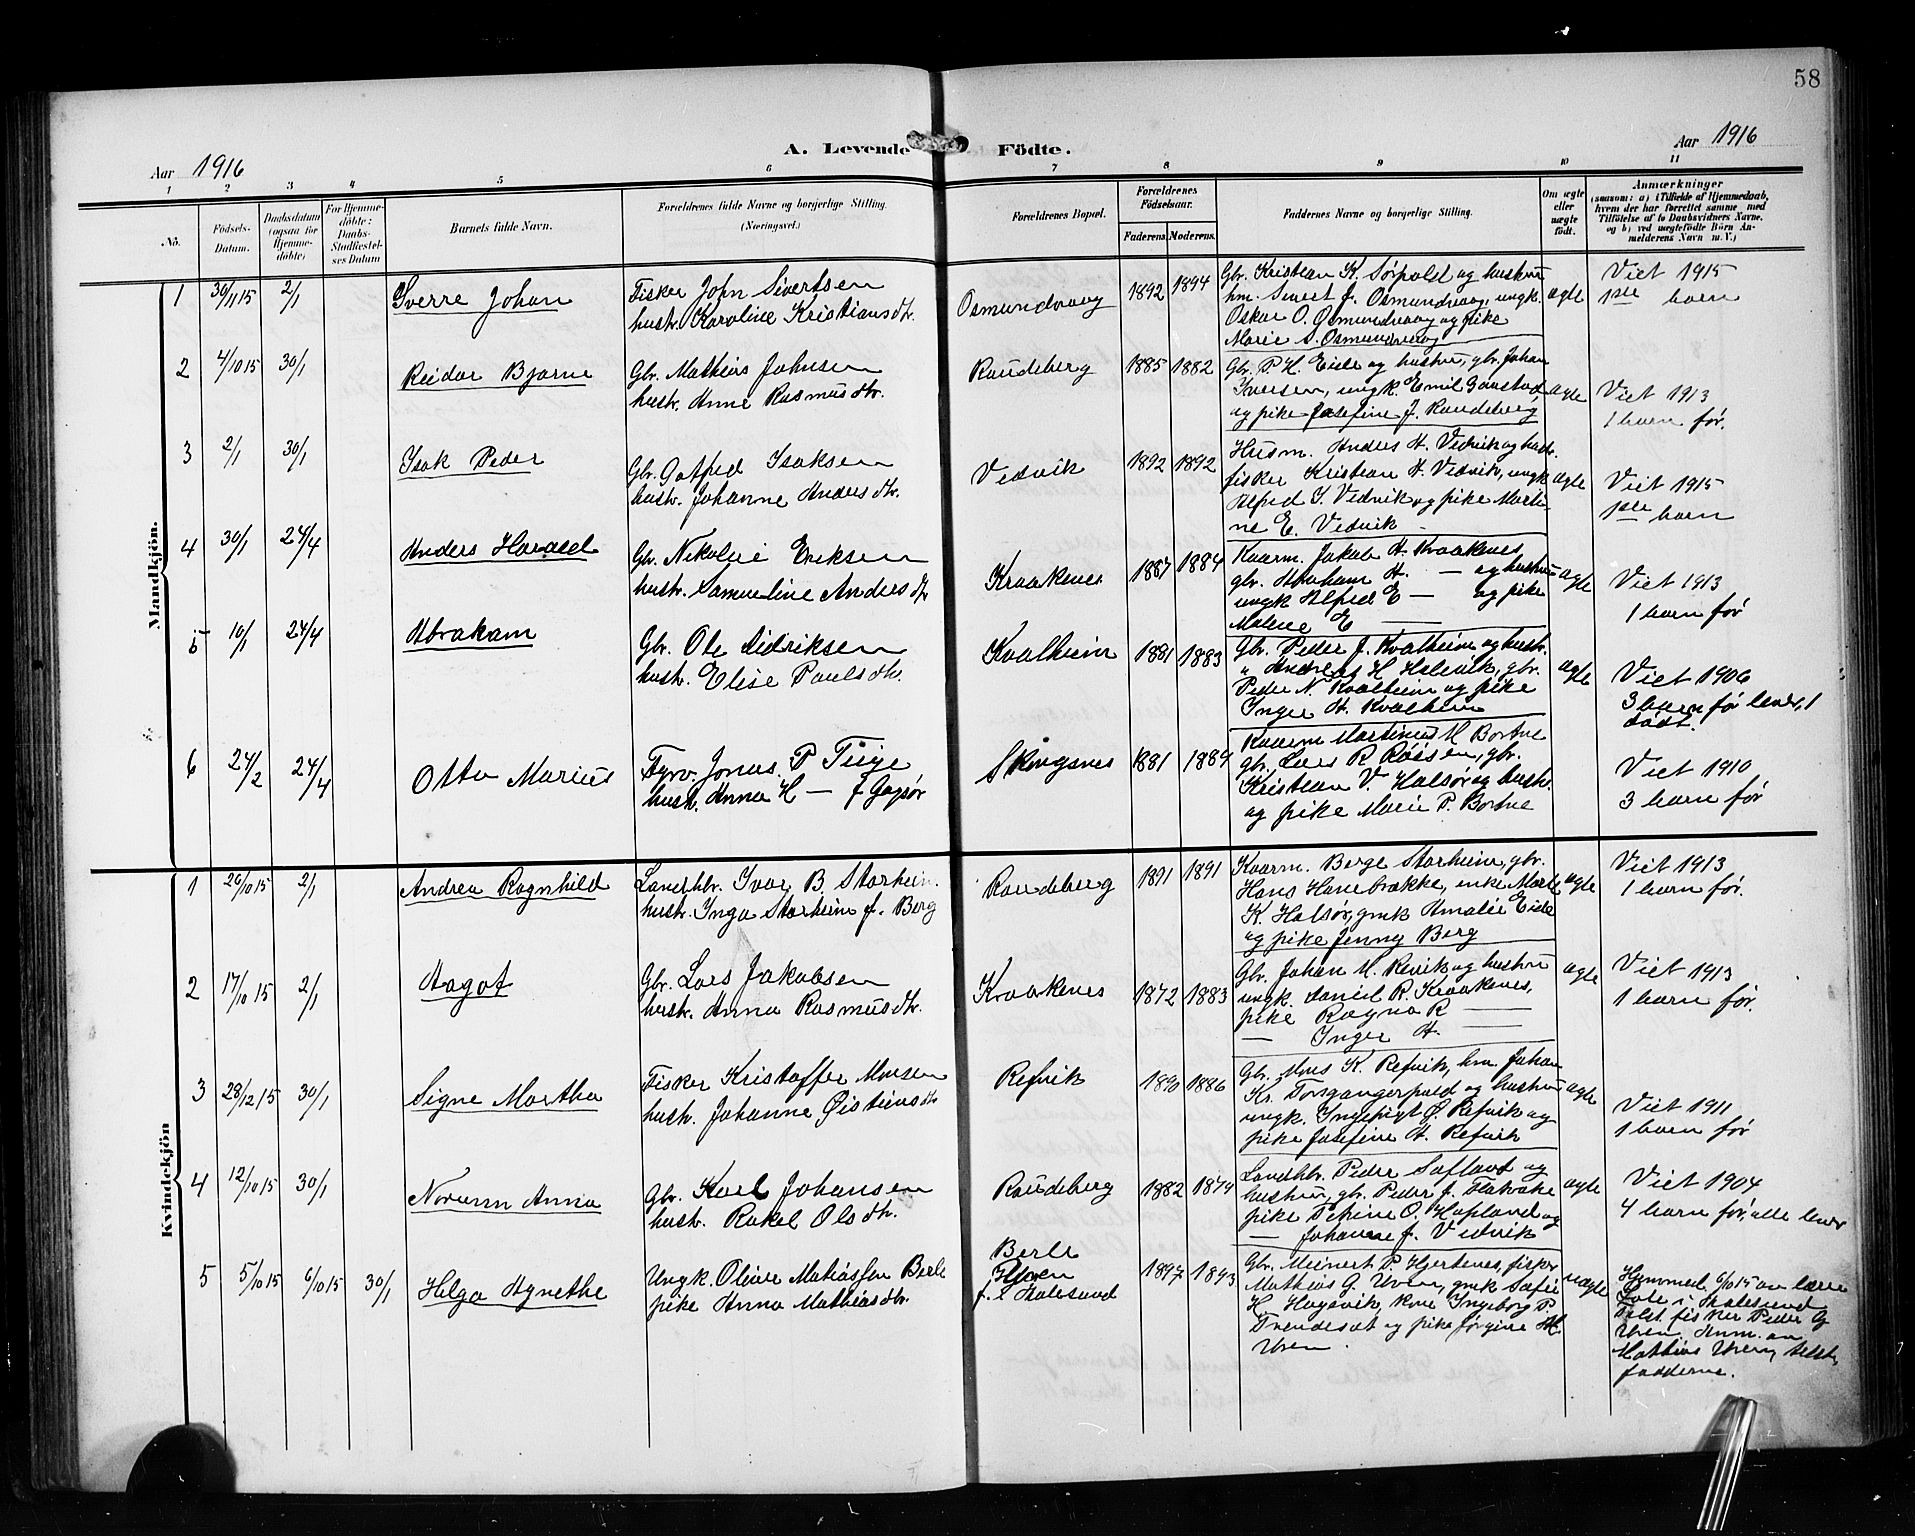 58
Aar 1916
A. Levende Födte.
Aar 1916
1 2 3 4 5 6 7 8 9 10 11
Nö.
Födsels-Datum.
Daabsdatum (ogsaa for Hjemme-döbte)
For Hjemme-döbte: Daabs-Stadfæstel-ses Datum
Barnets fulde Navn.
Forældrenes fulde Navne og borgerlige Stilling. (Næringsvei.)
Forældrenes Bopæl.
Forældrenes Födselsaar.
Faderens. Moderens.
Faddernes Navne og borgerlige Stilling.
Om ægte eller uægte födt.
Anmærkninger
(saasom: a) i Tilfælde af Hjemmedaab, hvem der har forrettet samme med Tilföielse af to Daabsvidners Navne. og b) ved uægtefödte Börn An-melderens Navn m. V.)
Mandkjön.
1 30/11 15 2/1 Sverre Johan
Fisker John Sivertsen
hustr. Karoline Kristiansdtr.
Osmundvaag 1892 1894
Gbr. Kristian K. Sørpold og hustru
hm. Sivert J. Osmundvaag, ungk.
Oskar O. Osmundvaag og pike
Marie S. Osmundvaag
ægte
Viet 1915
1ste barn
2 4/10 15 30/1 Reidar Bjarne
Gbr. Mathias Johnsen
hustr. Anne Rasmusdtr.
Raudeberg 1885 1882
Gbr. P. H. Eide og hustru, gbr. Johan
Iversen, ungk. Emil Gaustad,
og pike Josefine J. Raudeberg
ægte
Viet 1913
1 barn før.
3 2/1 30/1 Isak Peder
Gbr. Gotfred Isaksen
hustr. Johanne Andersdtr.
Vedvik 1892 1892
Husm. Anders A. Vedvik og hustr.
fisker Kristian A. Vedvik, ungk
Alfred I. Vedvik og pike Marti-
ne E. Vedvik
ægte
Viet 1915
1ste barn
4 30/1 24/4 Anders Harald
Gbr. Nikolai Eriksen
hustr. Samueline Andersdtr
Kraakenes 1887 1884
Kaarm. Jakob A. Kraakenes,
gbr. Abraham A. — og hustru
ungk Alfred E — og pike
Malene E —
ægte
Viet 1913
1 barn før
5 10/1 24/4 Abraham
Gbr. Ole Didriksen
hustr. Elise Paulsdtr.
Kvalheim 1881 1883
Gbr. Peder J. Kvalheim og hustr.
" Andreas H. Halsvik, gbr.
Peder N. Kvalheim og pike
Inger A. Kvalheim
ægte
Viet 1906
3 barn før lever, 1
dødt.
6 24/2 24/4 Otto Marius
Fyrv. Jonas P
hustr. Anna H —
Skongsnes 1881 1884
Kaarm Martinus M Bortne
gbr. Lars R Røssen, gbr.
Kristian V. Halsør og hustr.
og pike Marie P. Bortne
Viet 1910
3 barn før
Kvindekjön
1 26/10 15 2/1 Andrea Ragnhild
Landhbr. Ivar B. Starheim.
hustr. Inga Starheim f. Berg
Raudeberg 1891 1891
Kaarm. Berge Starheim, gbr.
Hans Hanebrække, enke Marte
K. Halsør, gmk Amalie Eide
og pike Jenny Berg
ægte
Viet 1913
1 barn før.
2 17/10 15 2/1 Aagot
Gbr. Lars Jakobsen
hustr. Anna Rasmusdtr.
Kraakenes 1872 1883
Gbr. Johan M. Revik og hustru
ungk. Daniel R. Kraakenes,
pike Ragna R —
— Inger A. —
ægte
Viet 1913
1 barn før.
3 28/12 15 30/1 Signe Martha
Fisker Kristoffer Monsen
hustr. Johanne Øistensdtr
Refvik 1890 1886
Gbr. Mons K. Refvik, hm. Johan
Kr. Torsgangerpold og hustru
ungk. Ingebrigt Ø. Refvik og
pike Josefine A. Refvik
ægte
Viet 1911
1 barn før
4 12/10 15 30/1 Norunn Anna
Gbr. Karl Johansen
hustr. Rakel Olsdtr.
Raudeberg 1882 1879
Landhbr. Peder Saflaat og
hustru, gbr. Peder J. Flatrake
pike Petrine O. Hapland og
— Johanne J. Vedvik
ægte
Viet 1904
4 barn før, alle lever
5 5/10 15 6/10 15 30/1 Helga Agnethe
Ungk. Oliver Matiassen Berle
pike Anna Mathiasdtr.
Berle
Uren
f. i Aalesund
1897 1893
Gbr. Meinert P. Hjertenes, fisker
Mathias G. Uren, gmk Sofie
H. Hagevik, kone Ingeborg P.
Trendesæt og pike Jørgine M.
Uren.
uægte
Hjemmed. 6/10 15 av lærer
i Aalesund
Tilst. fisker Peder G
Uren. Anm. av
Mattias Uren, tilst.
fadderne.